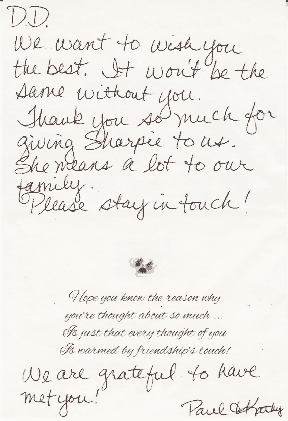 D.D.
We want to wish you
the best. It won't be the
same without you.
Thank you so much for
giving Sharpie to us.
She means a lot to our
family.
Please stay in touch!
Hope you know the reason why
you're thought about so much ...
Is just that every thought of you
Is warmed by friendship's touch!
We are grateful to have
met you!
Paul & Kathy